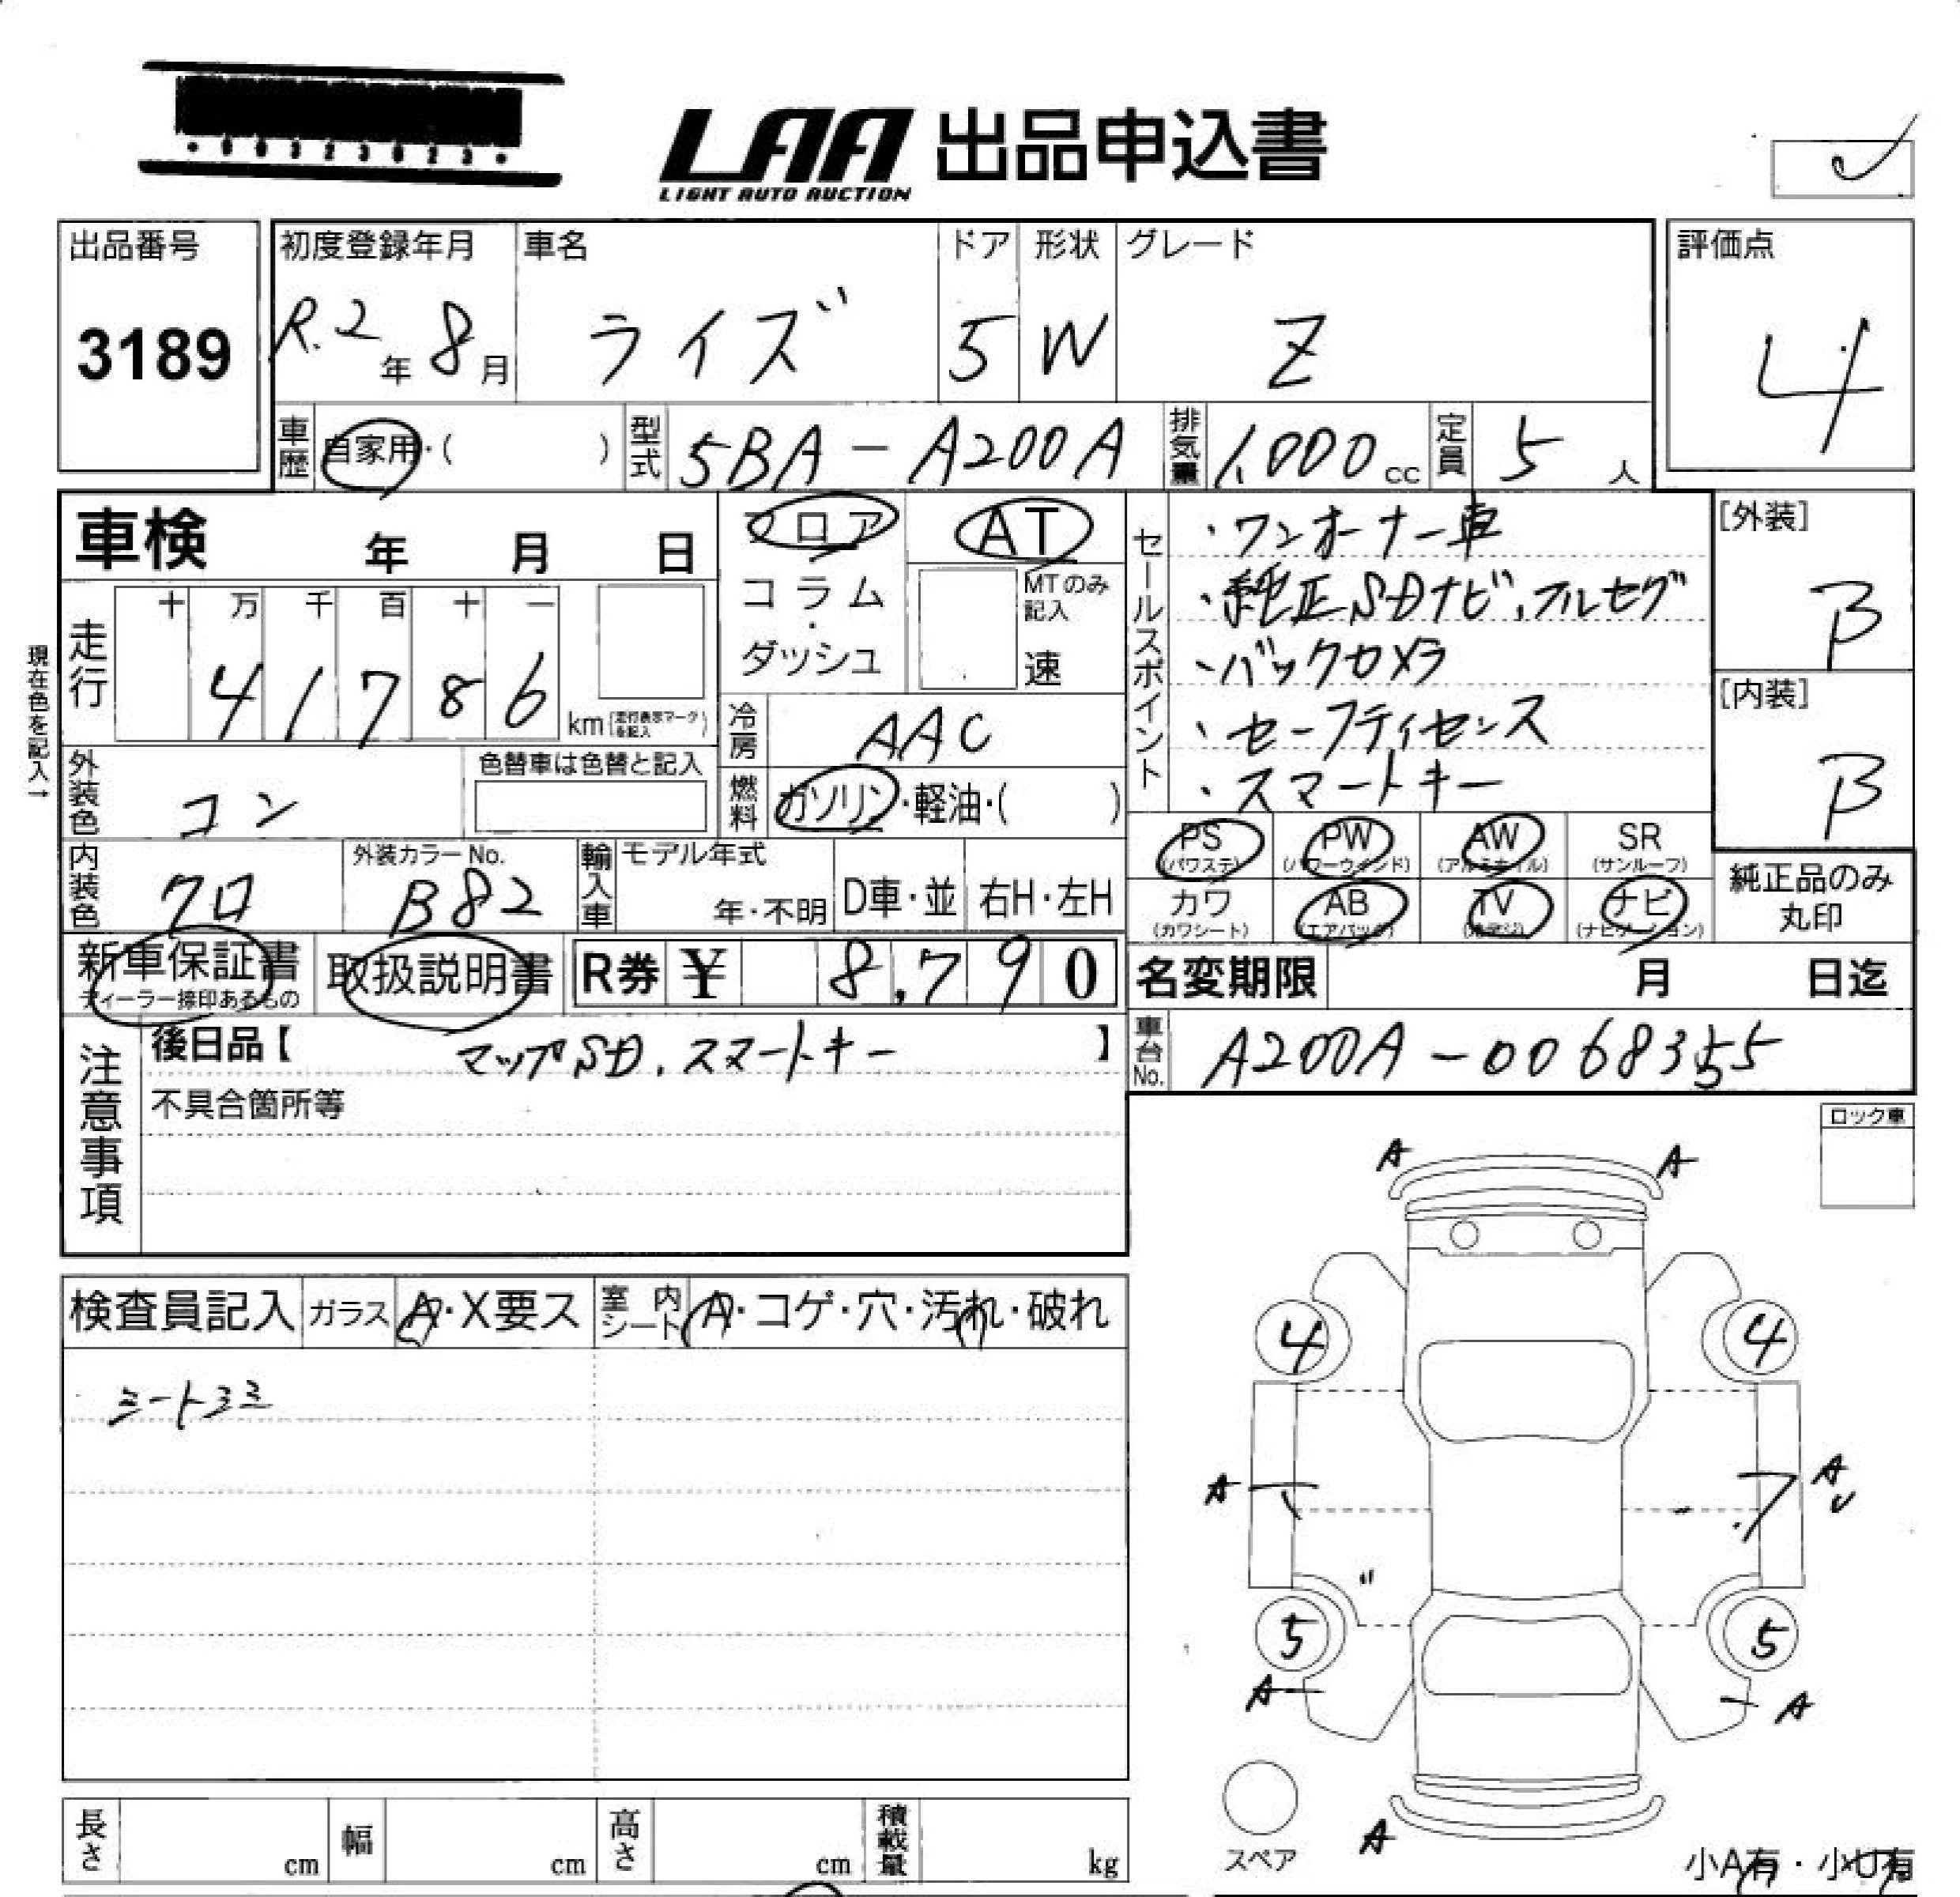 ·00323023·
LAA 出品申込書
LIGHT AUTO AUCTION
出品番号
3189
初度登録年月
R.2年 8月
車名
ライズ
ドア
5
形状
W
グレード
Z
評価点
4
車歴 自家用・( )
型式 5BA-A200A
排気量 1,000cc
定員 5人
車検 年 月 日
現在色を記入→
走行
十 万 千 百 十 一
4 1 7 8 6 km(走行表示マークを記入)
外装色 コン
色替車は色替と記入
内装色 クロ
外装カラーNo.
B82
輸入車 モデル年式
年・不明 D車・並 右H・左H
フロア
コラム
・
ダッシュ
AT
MTのみ記入
速
冷房 AAC
燃料 ガソリン・軽油・( )
セールスポイント
・ワンオーナー車
・純正SDナビ、フルセグ
・バックカメラ
・セーフティセンス
・スマートキー
[外装]
B
[内装]
B
PS (パワステ)
PW (パワーウィンド)
AW (アルミホイル)
SR (サンルーフ)
カワ (カワシート)
AB (エアバック)
TV (地デジ)
ナビ (ナビゲーション)
純正品のみ
丸印
新車保証書
ディーラー捺印あるもの
取扱説明書
R券 ¥ 8,790
名変期限 月 日迄
注意事項
後日品【 マップSD、スマートキー 】
不具合箇所等
車台No. A200A-0068355
ロック車
検査員記入 ガラス A・X要ス
室内シート A・コゲ・穴・汚れ・破れ
A A
4 4
A A
U
5 5
A A
A
スペア
小A有・小U有
長さ cm 幅 cm 高さ cm 積載量 kg